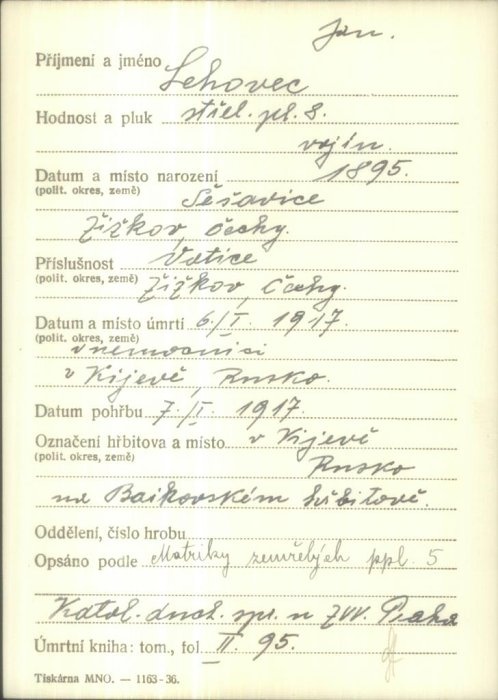 Jan.
Příjmení a jméno Lehovec
Hodnost a pluk střel. pl. 8.
vojín
Datum a místo narození 1895.
(polit. okres, země)
Sešavice
Žižkov, Čechy.
Příslušnost Votice
(polit. okres, země) Žižkov, Čechy.
Datum a místo úmrtí 6/I. 1917.
(polit. okres, země)
v nemocnici
v Kijevě, Rusko.
Datum pohřbu 7./I. 1917.
Označení hřbitova a místo v Kijevě
(polit. okres, země)
Rusko
na Baikovském hřbitově.
Oddělení, číslo hrobu
Opsáno podle Matriky zemřelých ppl. 5
Katol. duch. spr. u ZVV. Praha
Úmrtní kniha: tom., fol. II. 95.
Tiskárna MNO. — 1163-36.